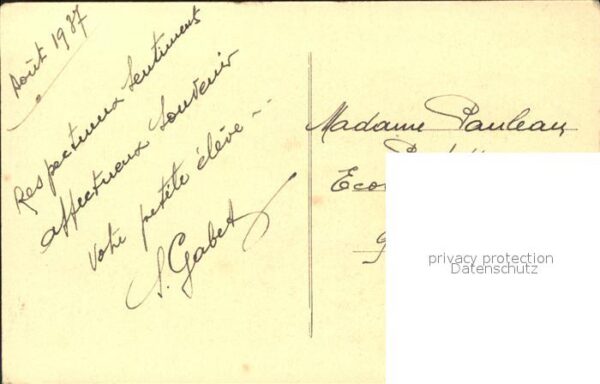 Août 1937
Respectueux Sentiments
affectueux Souvenir
Votre petite élève -
S. Gabet
Madame
privacy protection
Datenschutz